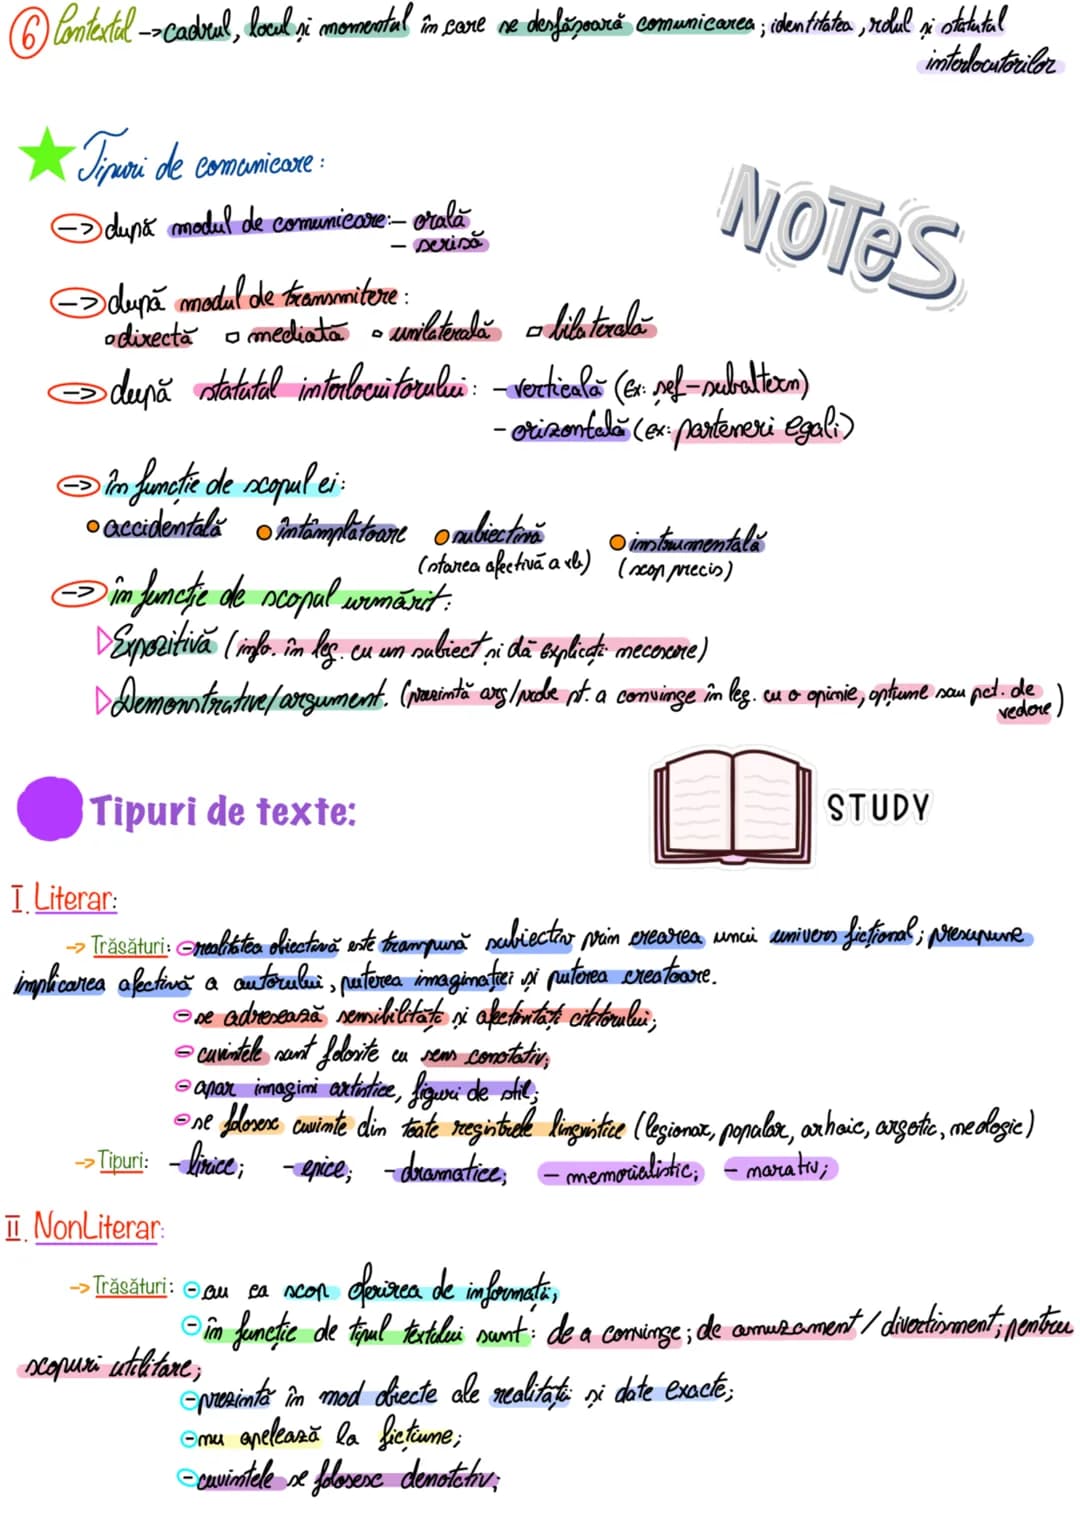 6 Contextul -> cadrul, locul și momentul în care se desfășoară comunicarea; identitatea, rolul și statutul
interlocutorilor
Tipuri de comunicare:
NOTES
-> după modul de comunicare: - orală
- scrisă
-> după modul de transmitere:
directă mediată unilaterală bilaterală
-> după statutul interlocuitorului: - verticală (Ex: șef-subaltern)
- orizontală (ex: parteneri egali)
-> în funcție de scopul ei:
accidentală întâmplătoare subiectivă instrumentală
(starea afectivă a vb) (scop precis)
-> în funcție de scopul urmărit:
Expozitivă (info. în leg. cu un subiect și dă explicații necesere)
Demonstrative/argument. (prezintă arg/probe pt. a convinge în leg. cu o opinie, opțiune sau pct. de
vedere)
Tipuri de texte:
STUDY
I. Literar:
-> Trăsături: - realitatea obiectivă este transpusă subiectiv prin crearea unui univers ficțional; presupune
implicarea afectivă a autorului, puterea imaginației și puterea creatoare.
- se adresează sensibilității și afectivității cititorului;
- cuvintele sunt folosite cu sens conotativ;
- apar imagini artistice, figuri de stil;
- se folosesc cuvinte din toate registrele lingvistice (legionar, popular, arhaic, argotic, neologic)
-> Tipuri: - lirice; - epice; - dramatice; - memorialistic; - narativ;
II. NonLiterar:
-> Trăsături: - au ca scop oferirea de informații;
- în funcție de tipul textului sunt: de a convinge; de amuzament / divertisment; pentru
scopuri utilitare;
- prezintă în mod obiecte ale realității și date exacte;
- nu apelează la ficțiune;
- cuvintele se folosesc denotativ;